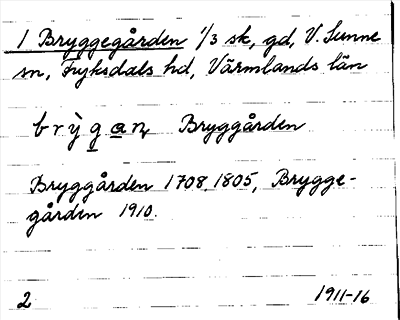 1 Bryggegården 1/3 sk, gd, V. Sunne
sn, Fryksdals hd, Värmlands län
brỳgan Bryggården
Bryggården 1708, 1805, Brygge-
gården 1910.
2 1911-16